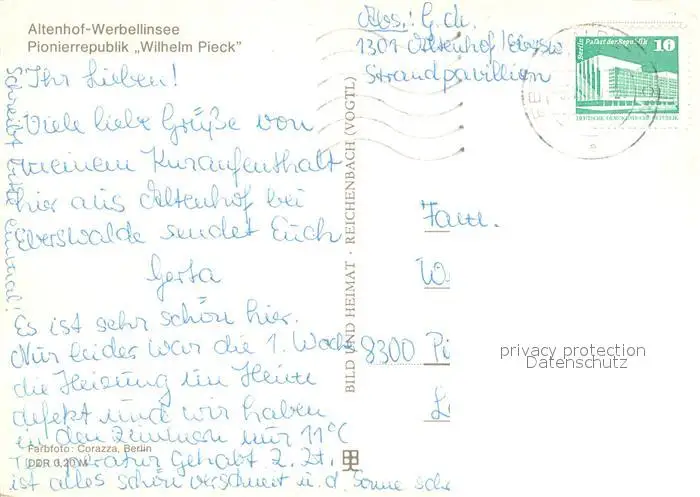 Altenhof-Werbellinsee
Pionierrepublik „Wilhelm Pieck"
Ihr Lieben!
Viele liebe Grüße von
meinem Kuraufenthalt
hier aus Altenhof bei
Eberswalde sendet Euch
Gerta
Es ist sehr schön hier.
Nur leider war die 1. Woche
die Heizung im Heim
defekt und wir haben
in den Zimmern nur 11°C
Temperatur Gehabt z. Zt.
ist alles schön verschneit u. d. Sonne sche
Schreibt bitte einmal!
Farbfoto: Corazza, Berlin
DDR 0,20 M
BILD UND HEIMAT · REICHENBACH (VOGTL)
Abs.: G. de.
1301 Altenhof/Ebersw
Strandpavillion
Berlin Palast der Republik 10
DEUTSCHE DEMOKRATISCHE REPUBLIK
Fam.
W
8300 Pi
privacy protection
Datenschutz